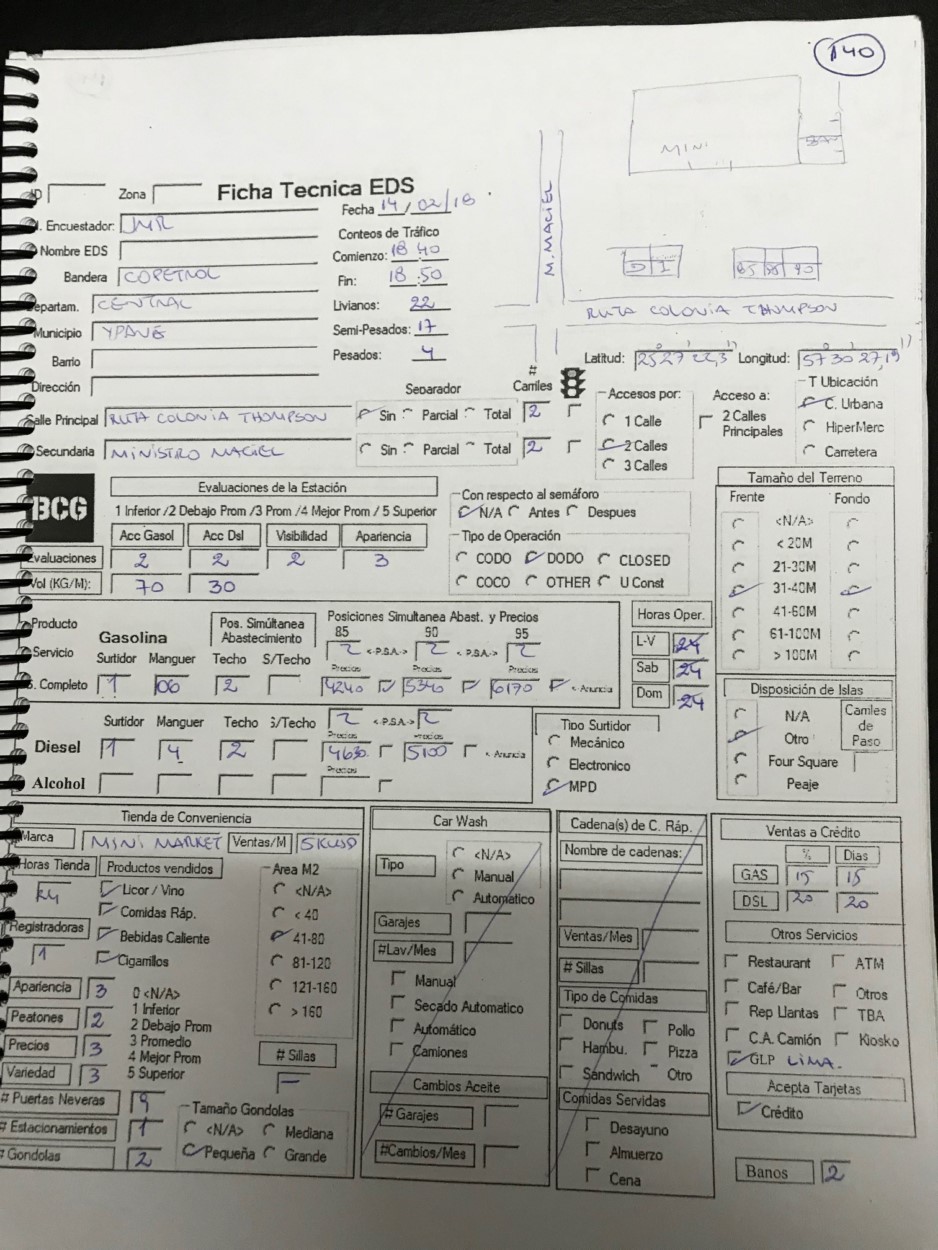 140
MINI
M. MACIEL
D I
85 95 90
RUTA COLONIA THOMPSON
ID Zona Ficha Tecnica EDS
Fecha 14/02/18
Encuestador: JMR
Conteos de Tráfico
Nombre EDS
Comienzo: 18 40
Bandera COPETROL
Fin: 18 50
Departam. CENTRAL
Livianos: 22
Municipio YPANE
Semi-Pesados: 17
Barrio
Pesados: 4
Latitud: 25° 27' 22,3" Longitud: 57° 30' 27,19"
Dirección
Separador # Carriles Accesos por: Acceso a: T Ubicación
Calle Principal RUTA COLONIA THOMPSON Sin Parcial Total 2
1 Calle 2 Calles Principales C. Urbana
2 Calles HiperMerc
Secundaria MINISTRO MACIEL Sin Parcial Total 2
3 Calles Carretera
BCG
Evaluaciones de la Estación
1 Inferior /2 Debajo Prom /3 Prom /4 Mejor Prom / 5 Superior
Acc Gasol Acc Dsl Visibilidad Apariencia
Evaluaciones 2 2 2 3
Vol (KG/M): 70 30
Con respecto al semáforo
N/A Antes Despues
Tipo de Operación
CODO DODO CLOSED
COCO OTHER U Const
Tamaño del Terreno
Frente Fondo
<N/A>
< 20M
21-30M
31-40M
41-60M
61-100M
> 100M
Producto
Servicio
Gasolina
Pos. Simúltanea Abastecimiento
Posiciones Simultanea Abast. y Precios
85 90 95
2 <-P.S.A-> 2 <-P.S.A-> 2
Surtidor Manguer Techo S/Techo Precios Precios Precios
S. Completo 1 06 2 4240 5340 6170 <- Anuncia
Horas Oper.
L-V 24
Sab 24
Dom 24
Surtidor Manguer Techo S/Techo 2 <-P.S.A-> 2
Precios Precios
Diesel 1 4 2 4630 5100 <- Anuncia
Precios
Alcohol
Tipo Surtidor
Mecánico
Electronico
MPD
Disposición de Islas
N/A
Otro
Four Square
Peaje
Carriles de Paso
Tienda de Conveniencia
Marca MINI MARKET Ventas/M 5KUSD
Horas Tienda Productos vendidos Area M2
24 Licor / Vino <N/A>
Comidas Ráp. < 40
Registradoras Bebidas Caliente 41-80
1 Cigarrillos 81-120
121-160
> 160
Apariencia 3 0 <N/A>
1 Inferior
Peatones 2 2 Debajo Prom
Precios 3 3 Promedio
4 Mejor Prom
Variedad 3 5 Superior
# Sillas
–
# Puertas Neveras 9
# Estacionamientos 1
# Gondolas 2
Tamaño Gondolas
<N/A> Mediana
Pequeña Grande
Car Wash
Tipo
<N/A>
Manual
Automatico
Garajes
#Lav/Mes
Manual
Secado Automatico
Automático
Camiones
Cambios Aceite
# Garajes
#Cambios/Mes
Cadena(s) de C. Ráp.
Nombre de cadenas:
Ventas/Mes
# Sillas
Tipo de Comidas
Donuts Pollo
Hambu. Pizza
Sandwich Otro
Comidas Servidas
Desayuno
Almuerzo
Cena
Ventas a Crédito
% Dias
GAS 15 15
DSL 20 20
Otros Servicios
Restaurant ATM
Café/Bar Otros
Rep Llantas TBA
C.A. Camión Kiosko
GLP LIMA.
Acepta Tarjetas
Crédito
Banos 2